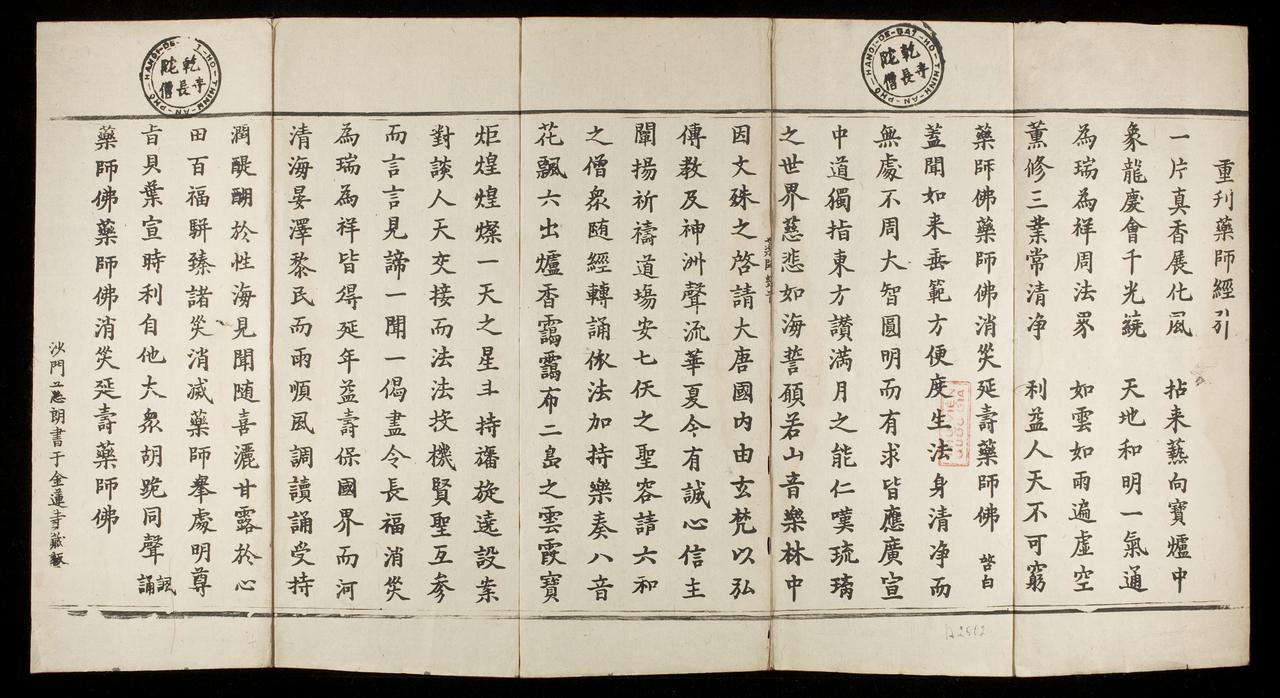 重刋藥師經引
一片真香展化風 拈来爇向寶爐中
象龍慶會千光繞 天地和明一氣通
為瑞為祥周法界 如雲如雨遍虛空
薰修三業常清净 利益人天不可窮
藥師佛藥師佛消災延壽藥師佛 啓白
蓋聞如来垂範方便度生法身清净而
無處不周大智圓明而有求皆應廣宣
中道獨指東方讃滿月之能仁嘆琉璃
之世界慈悲如海誓願若山音樂林中
因文殊之啓請大唐國内由玄梵以弘
傳教及神洲聲流華夏今有誠心信主
闡揚祈禱道塲安七佛之聖容請六和
之僧衆随經轉誦依法加持樂奏八音
花飄六出爐香靄靄布二島之雲霞寶
炬煌煌燦一天之星斗持旛旋遶設案
對談人天交接而法法投機賢聖互参
而言言見諦一聞一偈盡令長福消災
為瑞為祥皆得延年益壽保國界而河
清海晏澤黎民而雨順風調讀誦受持
潤醍醐於性海見聞随喜灑甘露於心
田百福駢臻諸災消滅藥師舉處明尊
旨貝葉宣時利自他大衆胡跪同聲誦
藥師佛藥師佛消災延壽藥師佛
沙門 朗書于金蓮寺藏
乾亭長陀僧
HANOI-DE-DAT-HO-THINH-AN-PHO
乾亭長陀僧
THƯ VIỆN
QUỐC GIA